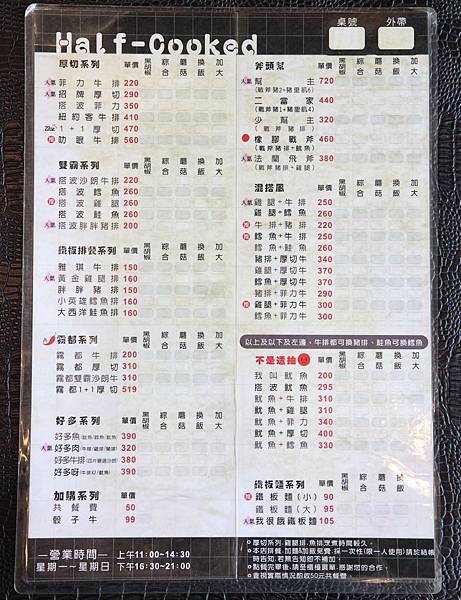 Half-Cooked
桌號 外帶
厚切系列 單價 黑胡椒 綜合 蘑菇 換飯 加大
人氣 菲力牛排 220
人氣 招牌厚切 290
搭波菲力 350
紐約客牛排 410
1+1厚切 470
推 叻眼牛排 560
雙霸系列 單價 黑胡椒 綜合 蘑菇 換飯 加大
人氣 搭波沙朗牛排 220
搭波鱈魚 260
推 搭波雞腿 260
搭波鮭魚 260
推 搭波胖胖豬排 200
鐵板排餐系列 單價 黑胡椒 綜合 蘑菇 換飯 加大
雅琪牛排 150
人氣 黃金雞腿排 160
胖胖豬排 150
小英雄鱈魚排 160
大西洋鮭魚排 160
霧都系列 單價 黑胡椒 綜合 蘑菇 換飯 加大
霧都牛排 200
霧都厚切 310
霧都雙霸沙朗牛 310
霧都1+1厚切 519
好多系列 單價 黑胡椒 綜合 蘑菇 換飯 加大
好多魚 390
人氣 好多肉 320
好多牛排 380
好多呀 390
加購系列 單價
共餐費 50
骰子牛 99
—營業時間— 上午11:00~14:30
星期一~星期日 下午16:30~21:00
斧頭幫 單價 黑胡椒 綜合 蘑菇 換飯 加大
人氣 幫主 720
(戰斧豬2+豬里肌6)
二當家 440
(戰斧豬1+豬里肌4)
少幫主 320
(戰斧豬排)
橡膠戰斧 460
(戰斧豬排+魷魚)
人氣 法蘭飛斧 380
(戰斧豬排+雞腿)
混搭風 單價 黑胡椒 綜合 蘑菇 換飯 加大
人氣 雞腿+牛排 250
雞腿+鱈魚 260
推 牛排+豬排 220
推 鱈魚+牛排 250
鱈魚+鮭魚 260
豬排+厚切 340
雞腿+厚切 370
鱈魚+厚切 370
豬排+菲力牛 290
人氣 雞腿+菲力牛 300
推 鱈魚+菲力牛 300
以上及以下及左邊，牛排都可換豬排、鮭魚可換鱈魚
不是透抽 單價 黑胡椒 綜合 蘑菇 換飯 加大
我叫魷魚 200
搭波魷魚 295
魷魚+牛排 310
魷魚+雞腿 310
魷魚+菲力 340
魷魚+厚切 400
魷魚+鱈魚 330
鐵板麵系列 單價 黑胡椒 綜合 蘑菇 加大
推 鐵板麵(小) 90
鐵板麵(大) 95
人氣 我很餓鐵板麵 105
厚切系列.雞腿排.魚排烹煮時間較久。
本店排餐.加麵&加飯免費,採一次性(限一人使用)請於結帳
時告知.若無告知恕不補加。
點餐完單後.請至櫃檯買單.感謝您的合作。
查視實際情況酌收50元共餐費。